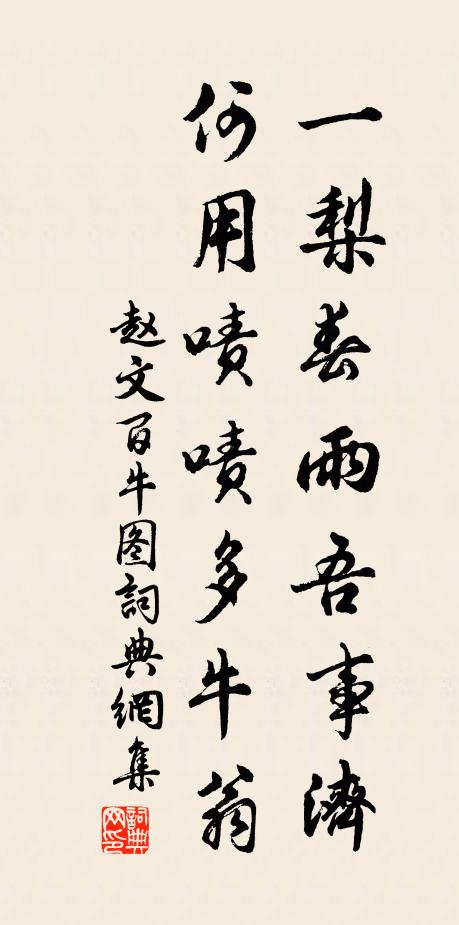 一梨春雨吾事濟
何用嘖嘖多牛翁
赵文百牛图詞典網集
詞典网印